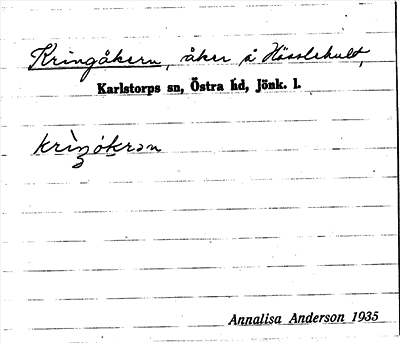 Kringåkern, åker å Hässlehult,
Karlstorps sn, Östra hd, Jönk. l.
krìŋo̊krən
Annalisa Anderson 1935